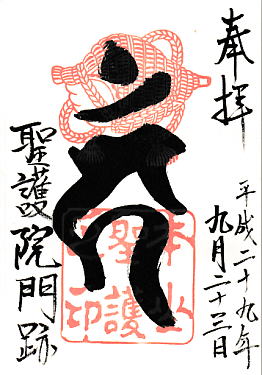 奉拝
平成二十九年
九月二十三日
聖護院門跡
本山
聖護
印